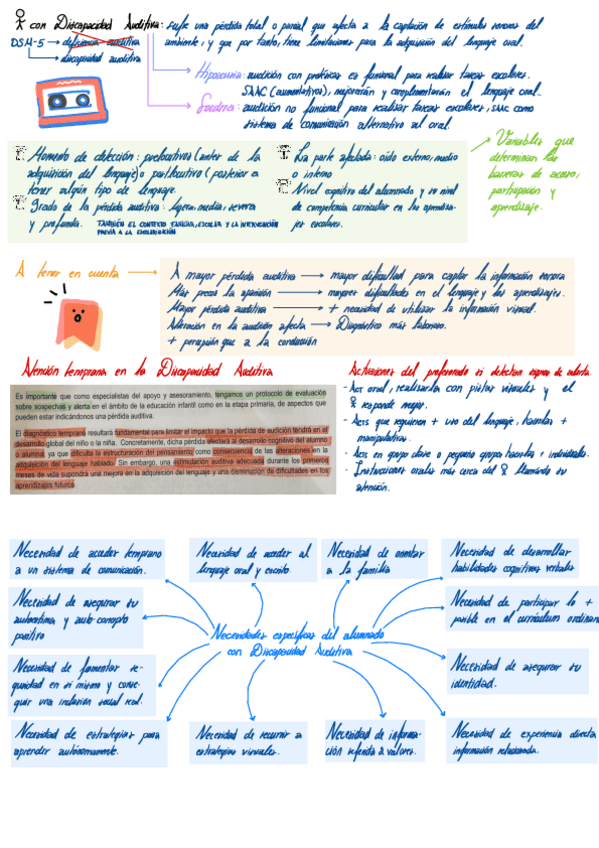 con Discapacidad Auditiva: sufre una pérdida total o parcial que afecta a la captación de estímulos sonoros del
DSM-5 → deficiencia auditiva
ambiente, y que por tanto, tiene limitaciones para la adquisición del lenguaje oral.
→ discapacidad auditiva
Hipoacusia: audición con prótesis es funcional para realizar tareas escolares.
SAAC (aumentativos), mejorarán y complementarán el lenguaje oral.
Sordera: audición no funcional para realizar tareas escolares, SAAC como
sistema de comunicación alternativo al oral.
Momento de detección: prelocutivos (antes de la
adquisición del lenguaje) o postlocutivo (posterior a
tener algún tipo de lenguaje.
Grado de la pérdida auditiva: ligera, media, severa
y profunda. TAMBIÉN EL CONTEXTO FAMILIAR, ESCOLAR Y LA INTERVENCIÓN
PREVIA A LA ESCOLARIZACIÓN
La parte afectada: oído externo, medio
o interno
Nivel cognitivo del alumnado y su nivel
de competencia curricular en los aprendiza-
jes escolares.
Variables que
determinan las
barreras de acceso,
participación y
aprendizaje.
A tener en cuenta →
A mayor pérdida auditiva → mayor dificultad para captar la información sonora
Más precoz la aparición → mayores dificultades en el lenguaje y los aprendizajes.
Mayor pérdida auditiva → + necesidad de utilizar la información visual.
Alteración en la audición afecta → Diagnóstico más laborioso.
+ percepción que a la conducción
Atención temprana en la Discapacidad Auditiva
Es importante que como especialistas del apoyo y asesoramiento, tengamos un protocolo de evaluación
sobre sospechas y alerta en el ámbito de la educación infantil como en la etapa primaria, de aspectos que
pueden estar indicándonos una pérdida auditiva.
El diagnóstico temprano resultará fundamental para limitar el impacto que la pérdida de audición tendrá en el
desarrollo global del niño o la niña. Concretamente, dicha pérdida afectará al desarrollo cognitivo del alumno
o alumna, ya que dificulta la estructuración del pensamiento como consecuencia de las alteraciones en la
adquisición del lenguaje hablado. Sin embargo, una estimulación auditiva adecuada durante los primeros
meses de vida supondrá una mejora en la adquisición del lenguaje y una disminución de dificultades en los
aprendizajes futuros.
Actuaciones del profesorado si detectan signos de alerta.
- Act oral, realizarla con pistas visuales y el
responde mejor.
- Acts que requieren + uso del lenguaje, hacerlas +
manipulativas.
- Acts en grupo clase o pequeño grupo hacerlas + individuales.
- Instrucciones orales más cerca del llamando su
atención.
Necesidad de acceder temprano
a un sistema de comunicación.
Necesidad de acceder al
lenguaje oral y escrito.
Necesidad de orientar
a la familia
Necesidad de desarrollar
habilidades cognitivas verbales
Necesidad de asegurar su
autoestima y auto-concepto
positivo
Necesidad de participar lo +
posible en el currículum ordinario
Necesidades específicas del alumnado
con Discapacidad Auditiva
Necesidad de fomentar se-
guridad en sí mismo y conse-
guir una inclusión social real.
Necesidad de asegurar su
identidad.
Necesidad de estrategias para
aprender autónomamente.
Necesidad de recurrir a
estrategias visuales.
Necesidad de informa-
ción referida a valores.
Necesidad de experiencia directa
información relacionada.